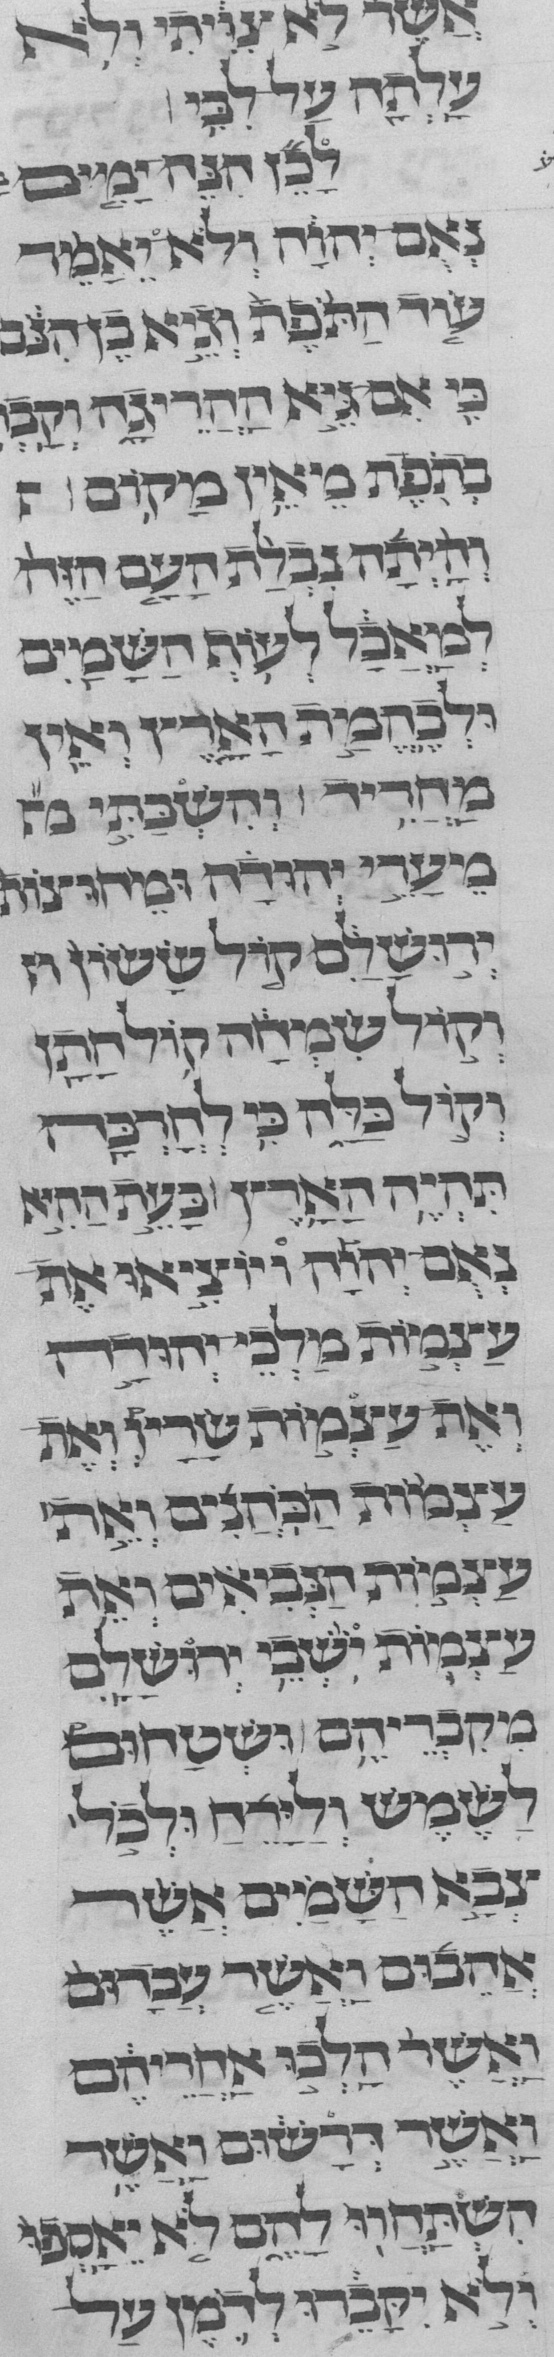 אֲשֶׁר לֹא צִוִּיתִי וְלֹא
עָלְתָה עַל לִבִּי׃
לָכֵן הִנֵּה יָמִים
נְאֻם יְהוָה וְלֹא יֵאָמֵר
עוֹד הַתֹּפֶת וְגֵיא בֶן הִנֹּם
כִּי אִם גֵּיא הַהֲרֵיגָה וְקָבְרוּ
בְתֹפֶת מֵאֵין מָקוֹם׃
וְהָיְתָה נִבְלַת הָעָם הַזֶּה
לְמַאֲכָל לְעוֹף הַשָּׁמַיִם
וּלְבֶהֱמַת הָאָרֶץ וְאֵין
מַחֲרִיד׃ וְהִשְׁבַּתִּי
מֵעָרֵי יְהוּדָה וּמֵחוּצוֹת
יְרוּשָׁלִַם קוֹל שָׂשׂוֹן
וְקוֹל שִׂמְחָה קוֹל חָתָן
וְקוֹל כַּלָּה כִּי לְחָרְבָּה
תִּהְיֶה הָאָרֶץ׃ בָּעֵת הַהִיא
נְאֻם יְהוָה ויוֹצִיאוּ אֶת
עַצְמוֹת מַלְכֵי יְהוּדָה
וְאֶת עַצְמוֹת שָׂרָיו וְאֶת
עַצְמוֹת הַכֹּהֲנִים וְאֵת
עַצְמוֹת הַנְּבִיאִים וְאֵת
עַצְמוֹת יֹשְׁבֵי יְרוּשָׁלִָם
מִקִּבְרֵיהֶם׃ וּשְׁטָחוּם
לַשֶּׁמֶשׁ וְלַיָּרֵחַ וּלְכֹל
צְבָא הַשָּׁמַיִם אֲשֶׁר
אֲהֵבוּם וַאֲשֶׁר עֲבָדוּם
וַאֲשֶׁר הָלְכוּ אַחֲרֵיהֶם
וַאֲשֶׁר דְּרָשׁוּם וַאֲשֶׁר
הִשְׁתַּחֲווּ לָהֶם לֹא יֵאָסְפוּ
וְלֹא יִקָּבֵרוּ לְדֹמֶן עַל